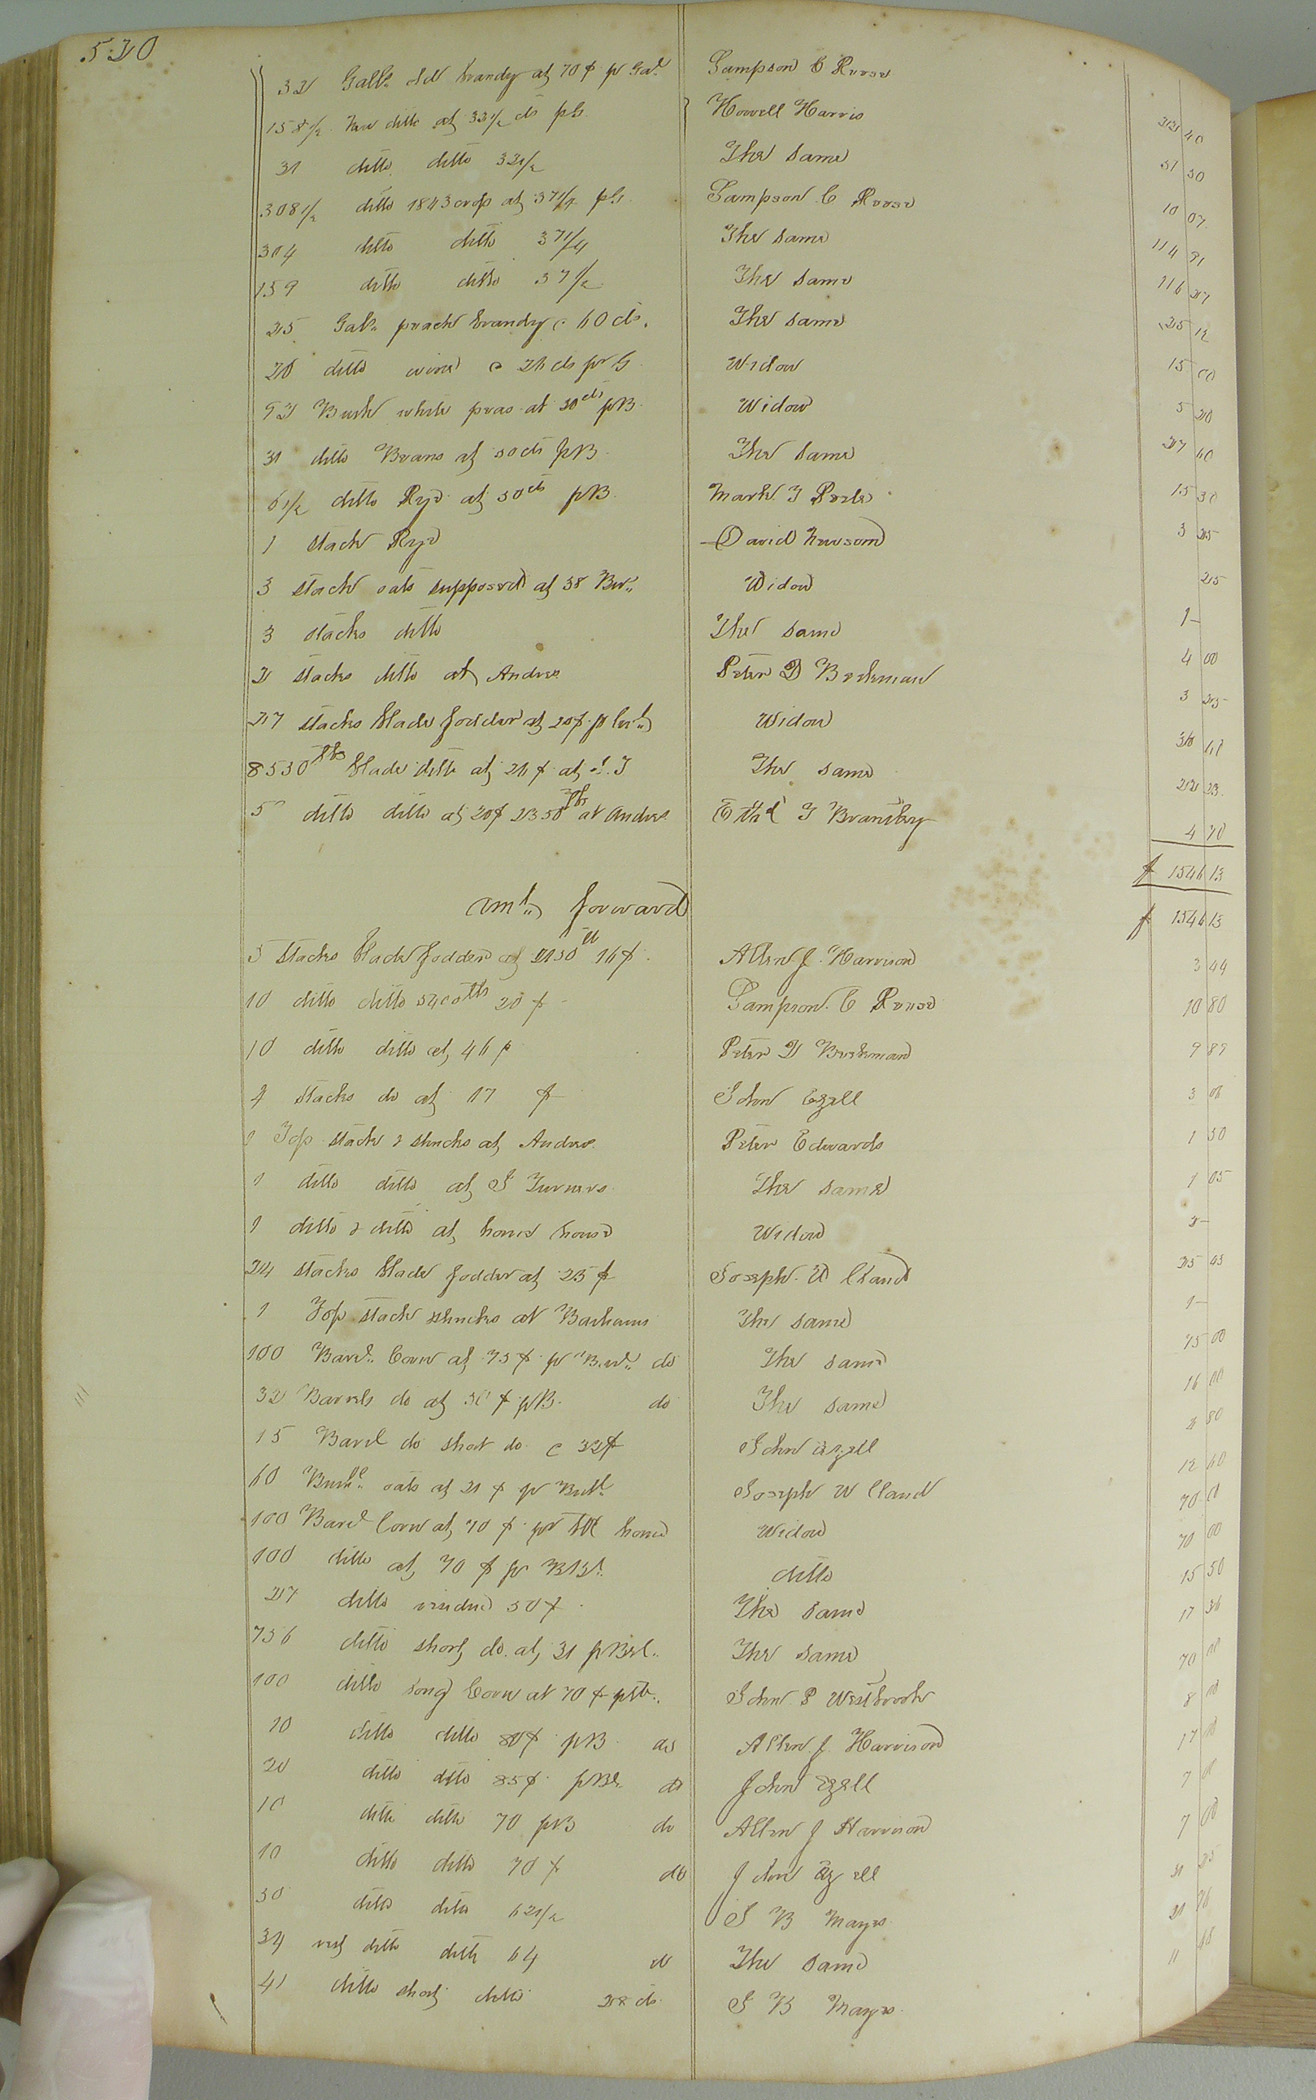 520
32 Galls. old brandy at 70 ¢ pr Gal. Sampson C Reese 22 40
158 1/2 New ditto at 32 1/2 cts pG. Howell Harris 51 50
31 ditto ditto 32 1/2 The same 10 07
308 1/2 ditto 1843 crop at 37 1/4 pG. Sampson C Reese 114 91
314 ditto ditto 37 1/4 The same 116 27
139 ditto ditto 37 1/2 The same
25 Gals. peach brandy c 60 cts. The same 15 00
20 ditto wine c 26 cts pr G Widow 5 20
92 Bush white peas at 30 cts pB. Widow 27 60
31 ditto Beans at 50 cts pB. The same 15 50
6 1/2 ditto Rye at 50 cts pB. Mark T 3 25
1 stack Rye David Newsom 25
3 stack oats supposed at 38 Bu. Widow 1 –
3 stacks ditto The same 4 00
2 stacks ditto at Andros Peter D Beckman 3 25
27 stacks blade fodder at 20 ¢ p Widow
8530 lbs blade ditto at 26 ¢ at The same 22 23
5 ditto ditto at 20 ¢ 2350 lbs at Andros T 4 70
$ 1546 13
amt. forward $ 1546 13
5 stacks blade fodder at 2150 lb 16 ¢ Allen J. Harrison 3 44
10 ditto ditto 5400 lbs 20 ¢ Sampson C Reese 10 80
10 ditto ditto at 46 ¢ Peter D Beckman 9 89
4 stacks do at 17 ¢ John Ezell 3 06
1 Top stack & shucks at Andros Peter Edwards 1 50
1 ditto ditto at S Turners The same 1 05
1 ditto & ditto at home house Widow 2 –
24 stacks blade fodder at 25 ¢ Joseph W Claud 25 03
1 Top stack shucks at Barhams The same 1 –
100 Barl. Corn at 75 ¢ pr Barl. do The same 75 00
32 Barrels do at 50 ¢ pB. do The same 16 00
15 Barrl do short do c 32 ¢ John Ezell 4 80
60 Bush. oats at 21 ¢ pr Bush. Joseph W Claud 12 60
100 Barl Corn at 70 ¢ pr Bbl home Widow 70 00
100 ditto at 70 ¢ pr Bbl. ditto 70 00
27 ditto 50 ¢ The same
56 ditto short do. at 31 pBrl. The same 17 36
100 ditto long Corn at 70 ¢ pBb. John P Westbrook 70 00
10 ditto ditto 80 ¢ pB. do Allen J. Harrison 8 00
20 ditto ditto 85 ¢ pBl. do John Ezell 17 00
10 ditto ditto 70 pB do Allen J Harrison 7 00
10 ditto ditto 70 ¢ do John Ezell 7 00
50 ditto ditto 62 1/2 S B Mayes 31 25
34 ditto ditto 64 do The same 21 76
41 ditto short ditto 28 cts S B Mayes 11 48